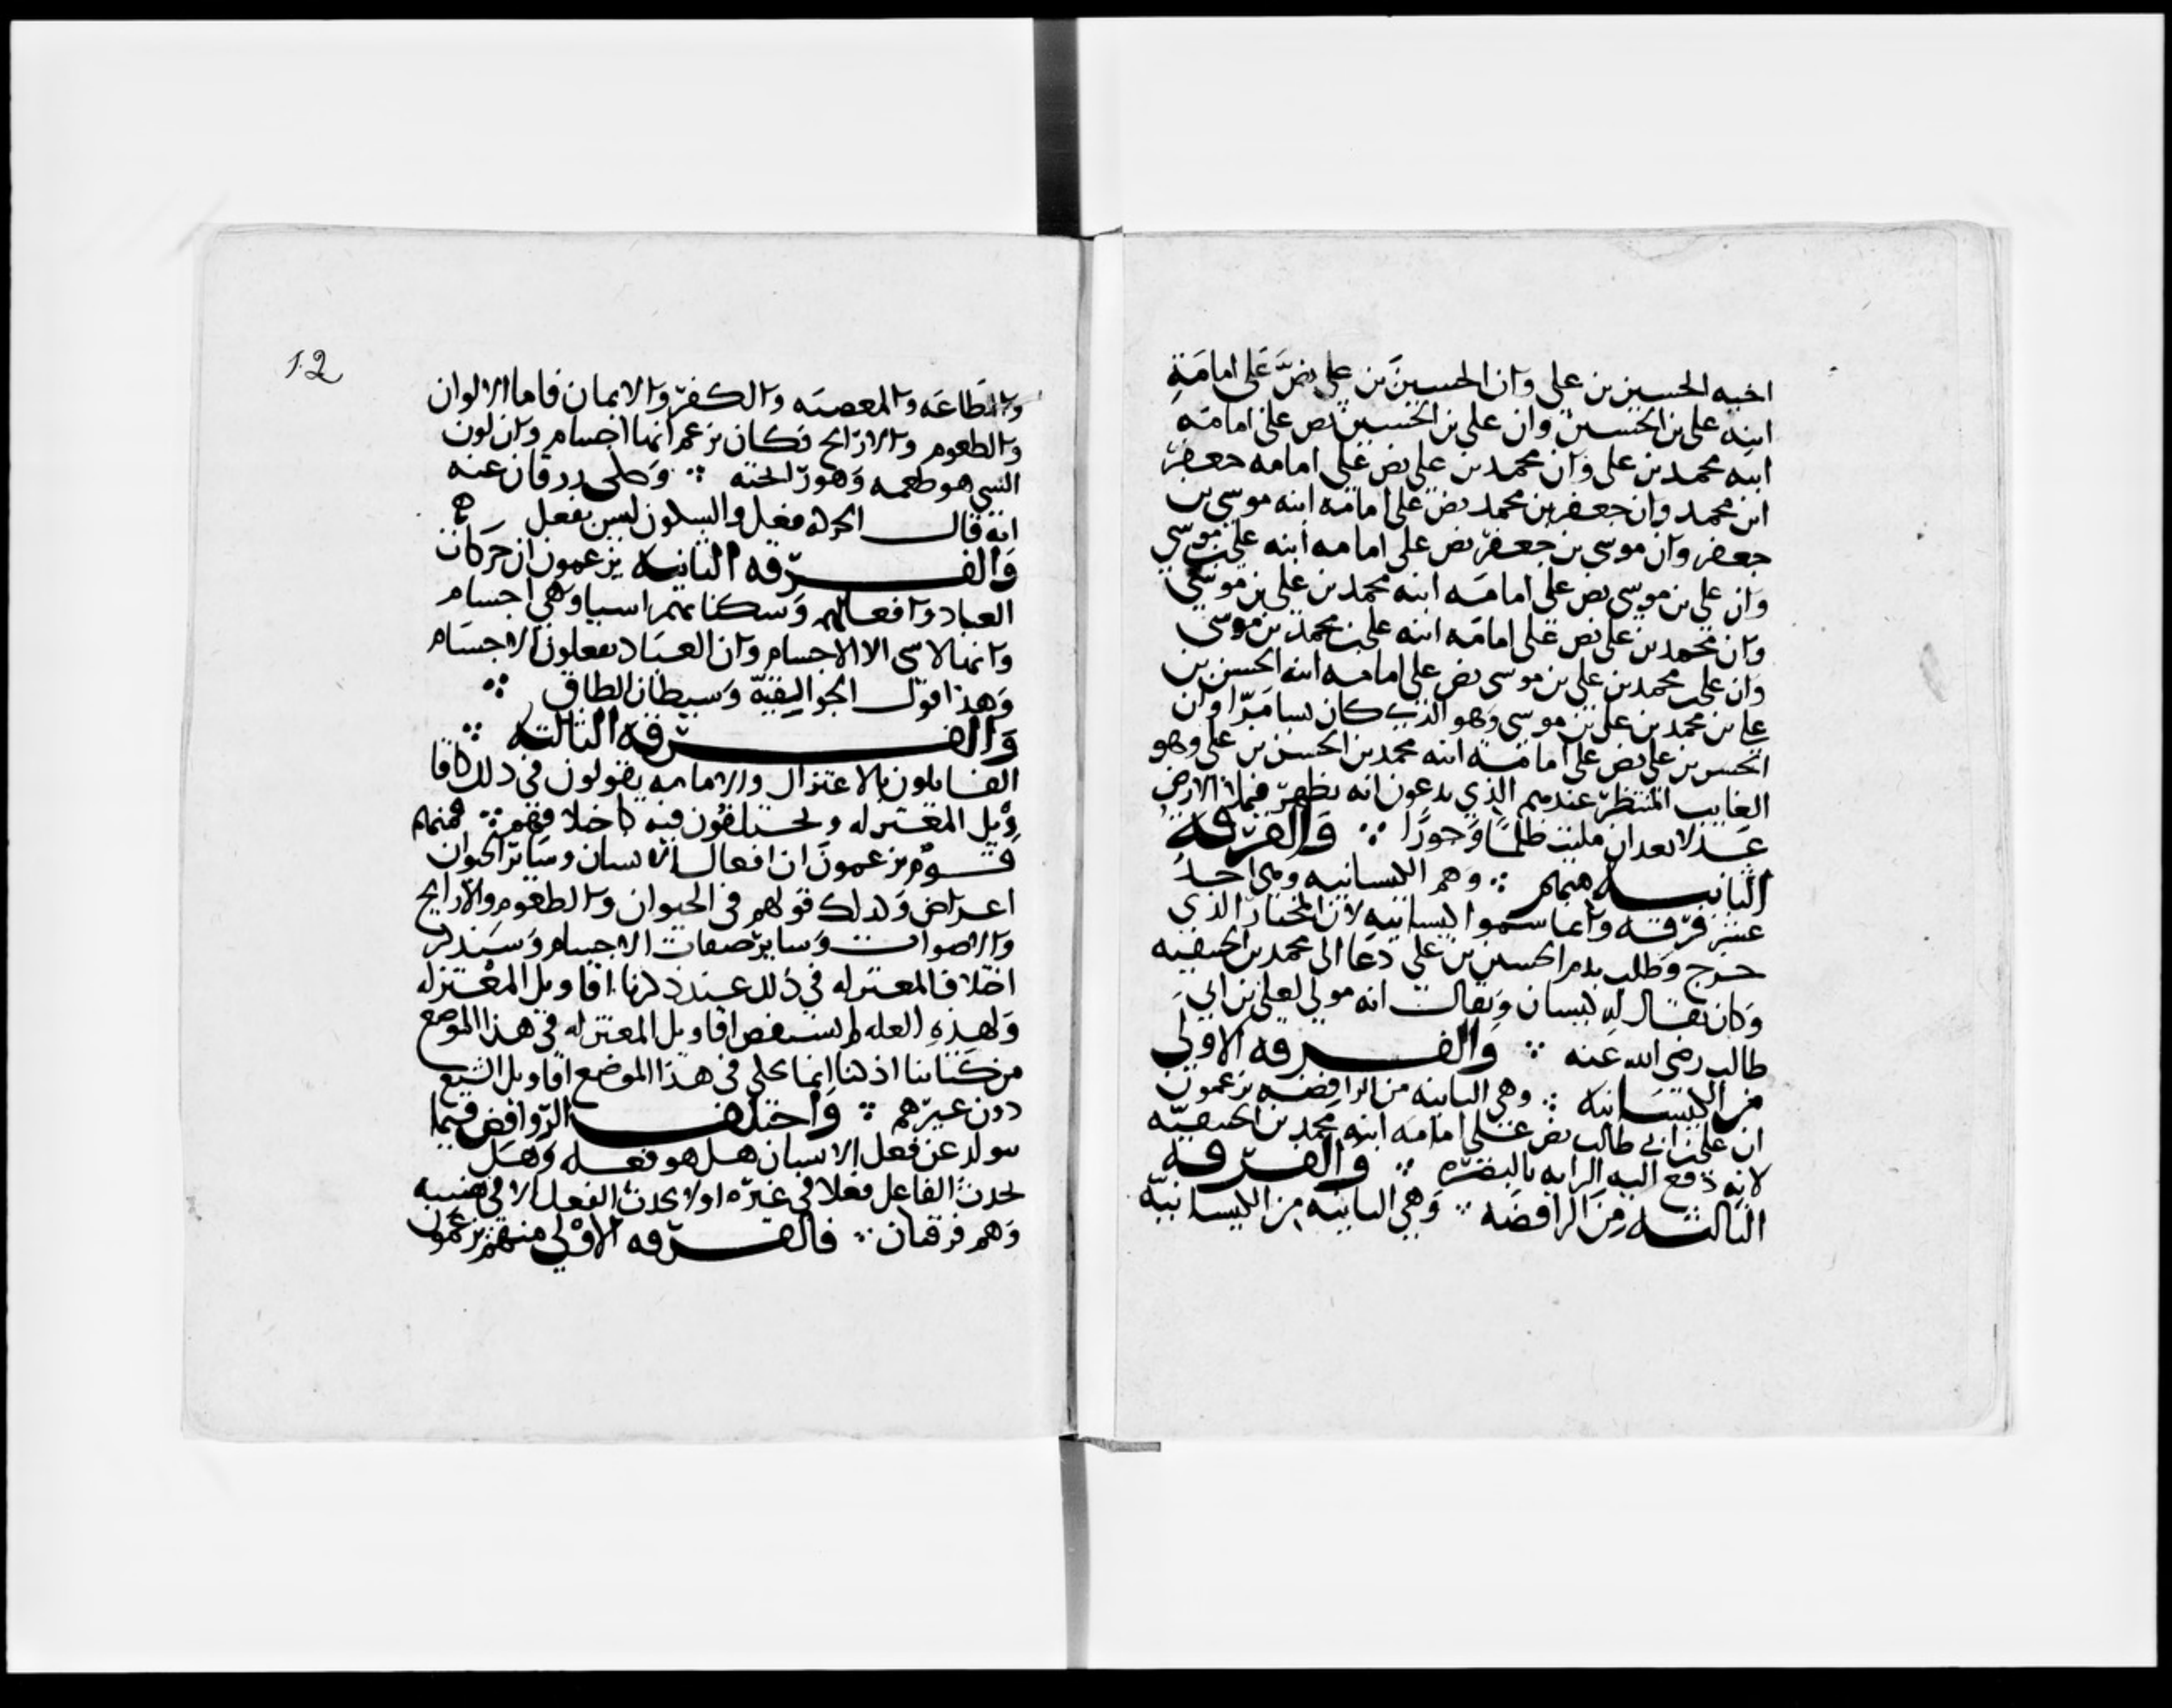 اخيه الحسين بن علي وان الحسين بن علي نص على امامة
ابنه علي بن الحسين وان علي بن الحسين نص على امامة
ابنه محمد بن علي وان محمد بن علي نص على امامه جعفر
ابن محمد وان جعفر بن محمد نص على امامة ابنه موسى بن
جعفر وان موسى بن جعفر نص على امامه ابنه علي بن موسى
وان علي بن موسى نص على امامه ابنه محمد بن علي بن موسى
وان محمد بن علي نص على امامه ابنه علي بن محمد بن موسى
وان علي بن محمد بن علي بن موسى نص على امامه ابنه الحسن بن
علي بن محمد بن علي بن موسى وهو الذي كان بسامرا وان
الحسن بن علي نص على امامة ابنه محمد بن الحسن بن علي وهو
الغايب المنتظر عندهم الذي يدعون انه يظهر فيملأ الارض
عدلا بعد ان ملئت ظلما وجورا ∴ والفرقة
الثانيه منهم ∴ وهم الكيسانيه وهي احد
عشر فرقه وانما سموا كيسانيه لان المختار الذي
خرج وطلب بدم الحسين بن علي دعا الى محمد بن الحنفيه
وكان يقال له كيسان ويقال انه مولى لعلي بن ابي
طالب رضي الله عنه ∴ والفرقه الاولى
من الكيسانيه ∴ وهي الثانيه من الرافضه يزعمون
ان علي بن ابي طالب نص على امامه ابنه محمد بن الحنفيه
لانه دفع اليه الرايه بالبصره ∴ والفرقه
الثالثه من الرافضه ∴ وهي الثانيه من الكيسانيه
12
والطاعه والمعصيه والكفر والايمان فاما الالوان
والطعوم والارايح فكان يزعم انها اجسام وان لون
الشي هو طعمه وهو رايحته ∴ وحكى زرقان عنه
انه قال الحركه فعل والسكون ليس بفعل
والفرقه الثانيه يزعمون ان حركات
العباد وافعالهم وسكناتهم اشيا وهي اجسام
وانه لا شي الا الاجسام وان العباد يفعلون الاجسام
وهذا قول الجواليقيه وشيطان الطاق ∴
والفرقه الثالثه ∴
القايلون بالاعتزال والامامه يقولون في ذلك كاقا
ويل المعتزله ويختلفون فيه كاختلافهم ∴ فمنهم
قوم يزعمون ان افعال الانسان وساير الحيوان
اعراض وكذلك قولهم في الحيوان والطعوم والارايح
والاصوات وساير صفات الاجسام وسنذكر
اختلاف المعتزله في ذلك عند ذكرنا اقاويل المعتزله
ولهذه العله لم نستقص اقاويل المعتزله في هذا الموضع
من كتابنا اذ كنا انما نحكي في هذا الموضع اقاويل الشيع
دون غيرهم ∴ واختلف الروافض فيما
يتولد عن فعل الانسان هل هو فعله وهل
يحدث الفاعل فعلا في غيره او لا يحدث الفعل الا في نفسه
وهم فرقتان ∴ فالفرقه الاولى منهم يزعمون